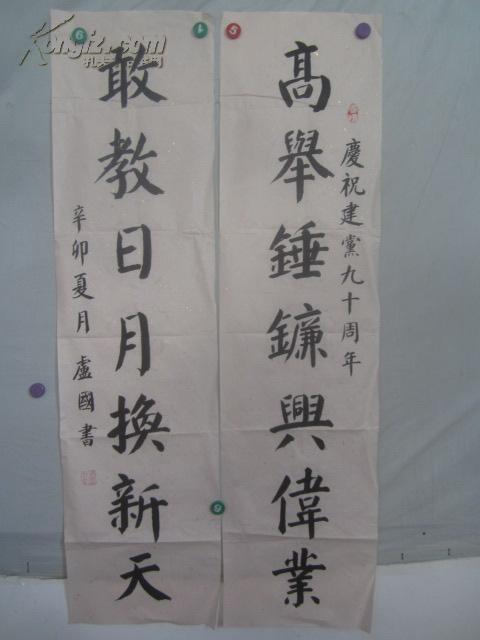 慶祝建黨九十周年
高舉錘鐮興偉業
敢教日月換新天
辛卯夏月 盧國書
Kongfz.com